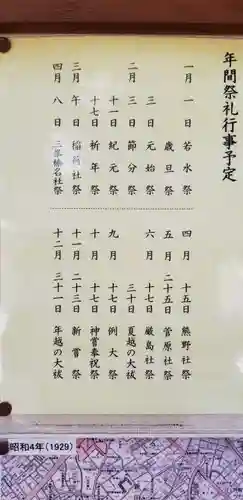 年間祭礼行事予定
一月 一日 若水祭
歳旦祭
三日 元始祭
二月 三日 節分祭
十一日 紀元祭
十七日 祈年祭
三月 午日 稲荷社祭
四月 八日 三峯榛名社祭
四月 十五日 熊野社祭
五月 二十五日 菅原社祭
六月 十七日 厳島社祭
三十日 夏越の大祓
九月 十七日 例大祭
十月 十七日 神嘗奉祝祭
十一月 二十三日 新嘗祭
十二月 三十一日 年越の大祓
昭和4年(1929)